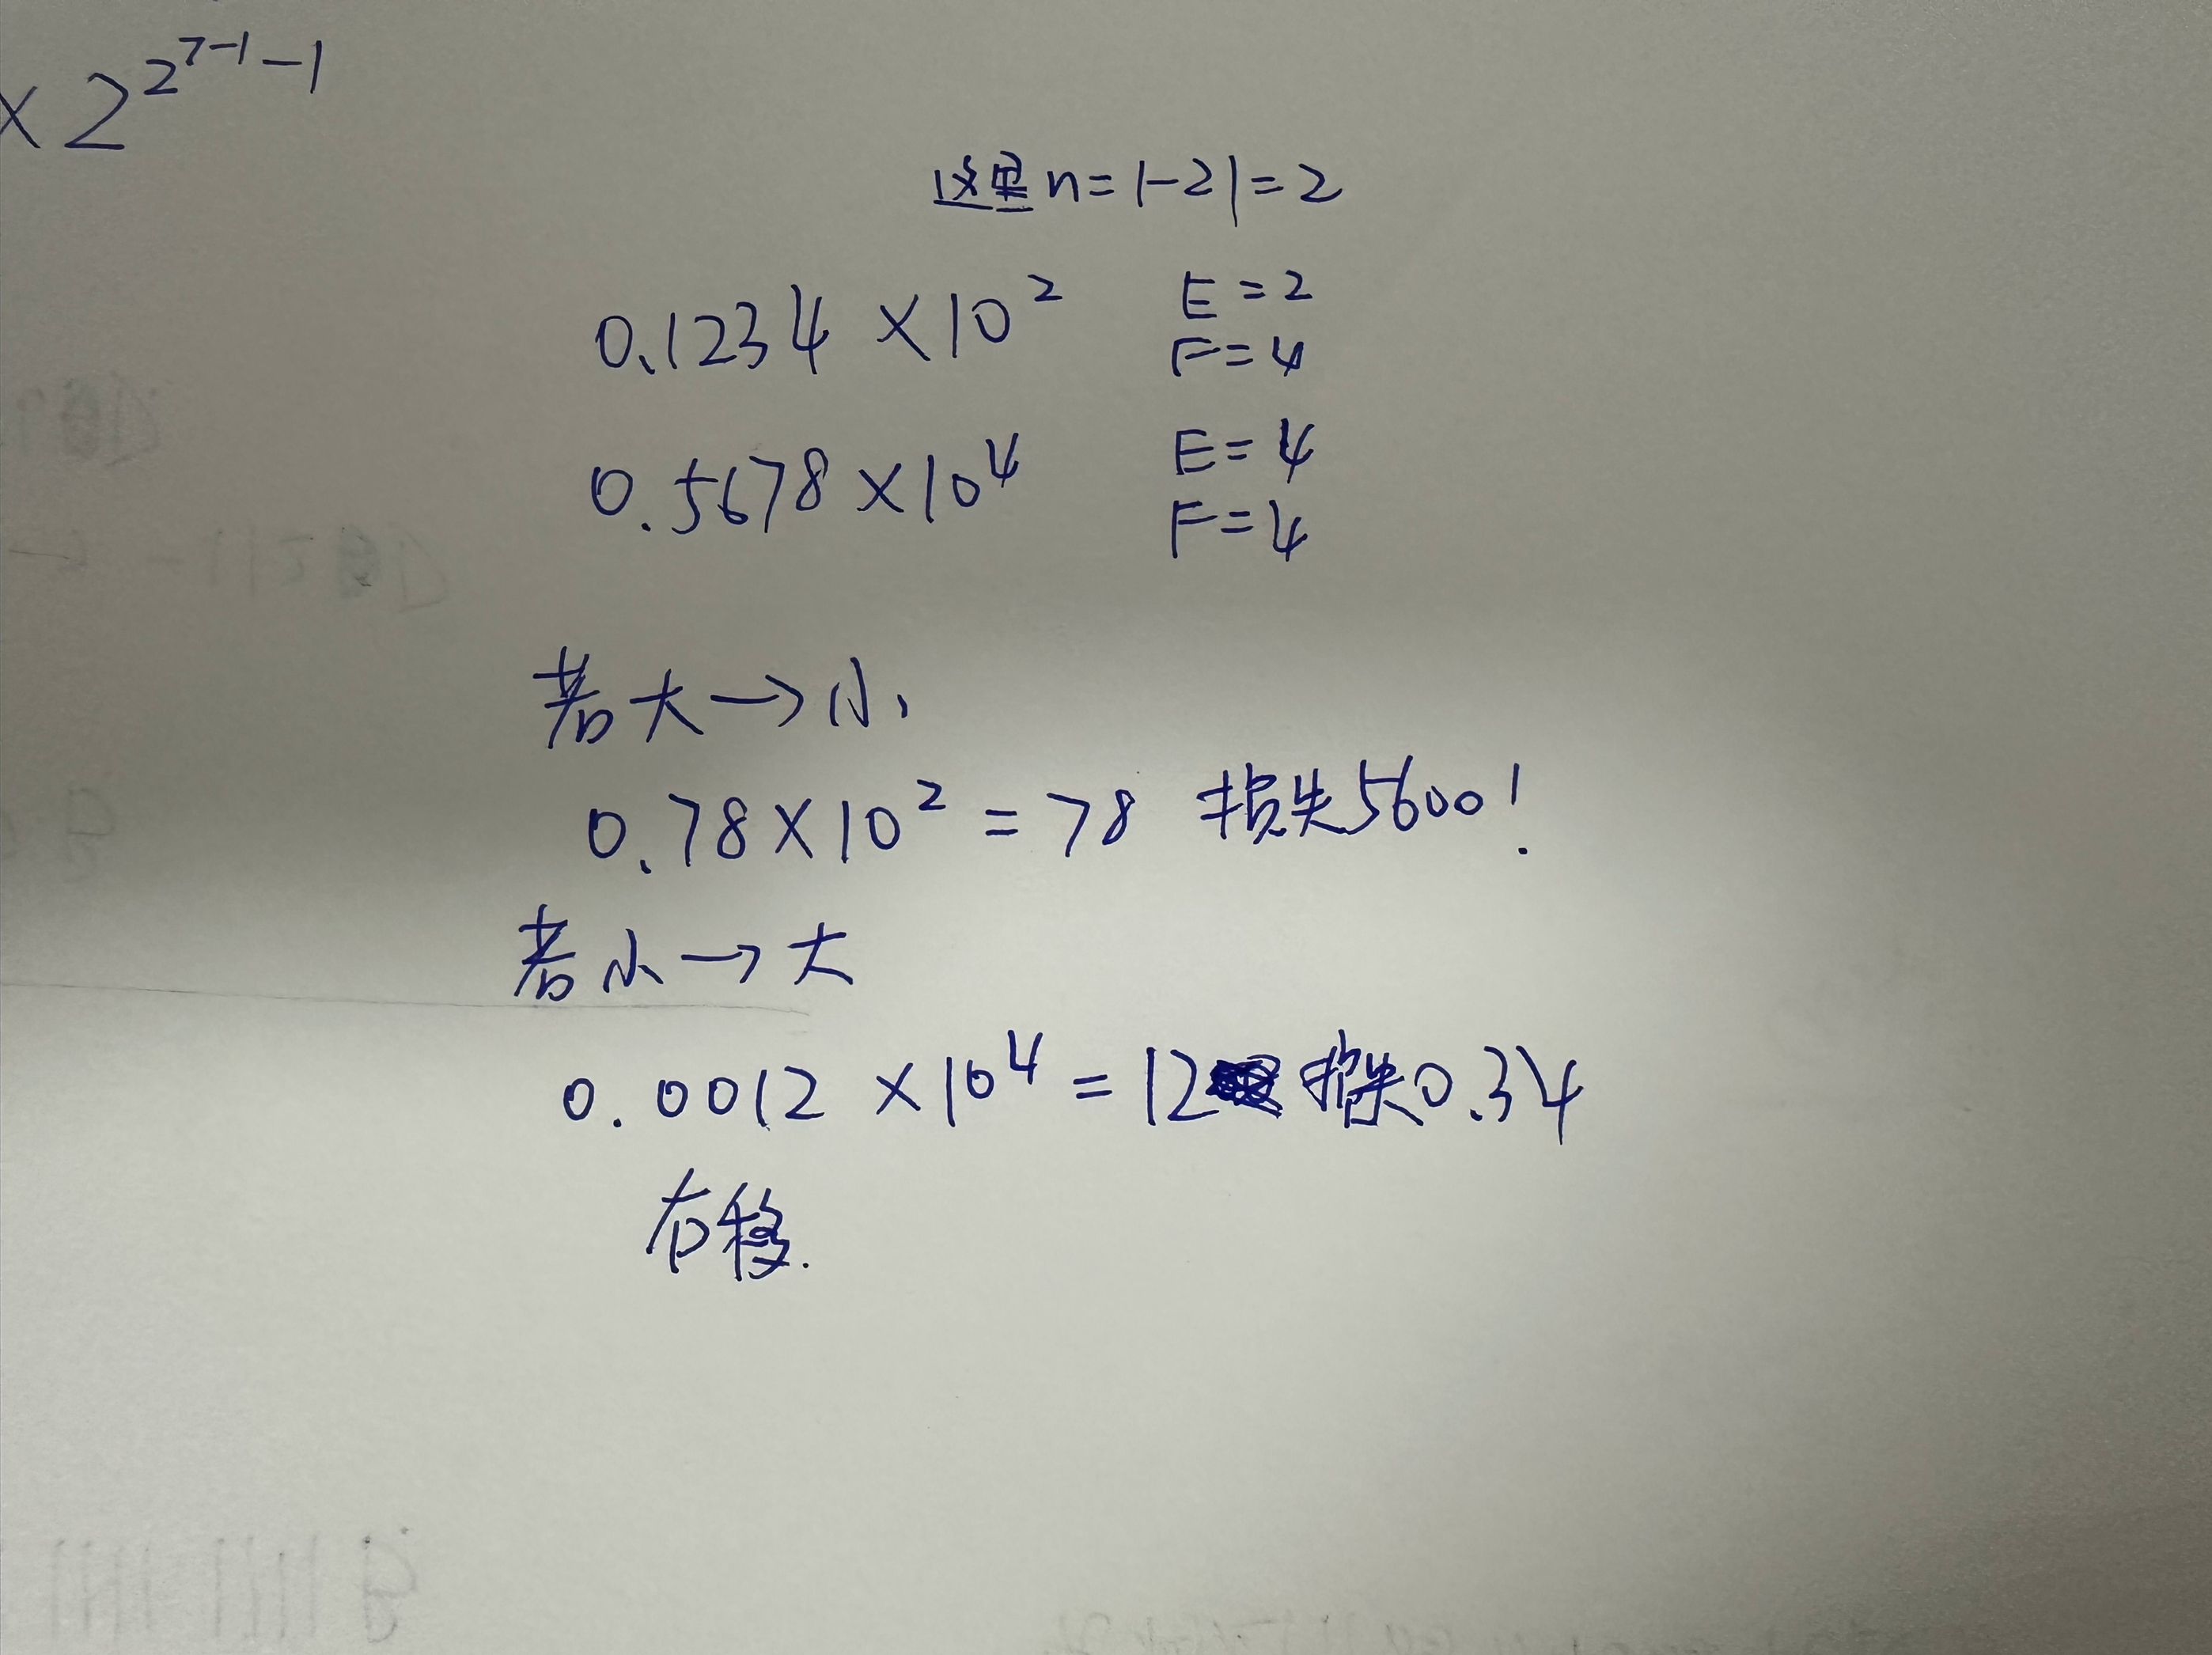 ×2^{2^{7-1}-1}
这里n=|-2|=2
0.1234×10² E=2
F=4
0.5678×10⁴ E=4
F=4
若大→小
0.78×10²=78 损失5600!
若小→大
0.0012×10⁴=12 损失0.34
右移.